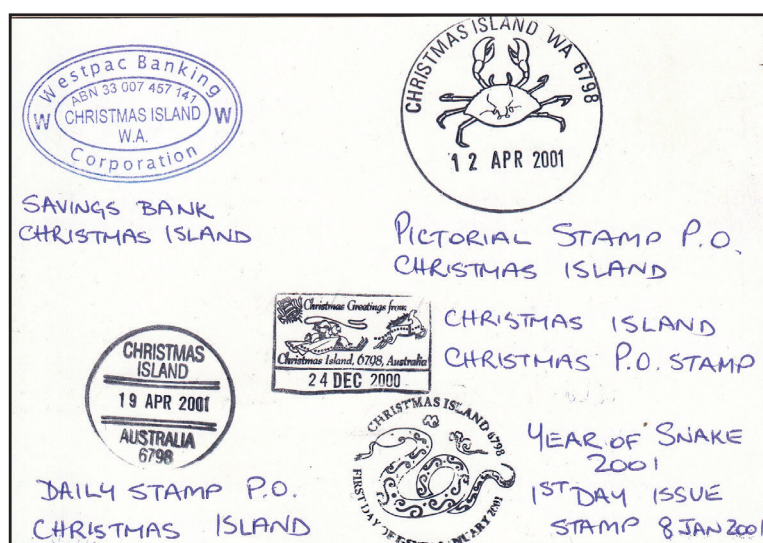 Westpac Banking
ABN 33 007 457 141
W CHRISTMAS ISLAND W
W.A.
Corporation
SAVINGS BANK
CHRISTMAS ISLAND
CHRISTMAS ISLAND WA 6798
12 APR 2001
PICTORIAL STAMP P.O.
CHRISTMAS ISLAND
Christmas Greetings from
Christmas Island, 6798, Australia
24 DEC 2000
CHRISTMAS ISLAND
CHRISTMAS P.O. STAMP
CHRISTMAS
ISLAND
19 APR 2001
AUSTRALIA
6798
DAILY STAMP P.O.
CHRISTMAS ISLAND
CHRISTMAS ISLAND 6798
FIRST DAY OF JANUARY 2001
YEAR OF SNAKE
2001
1ST DAY ISSUE
STAMP 8 JAN 2001